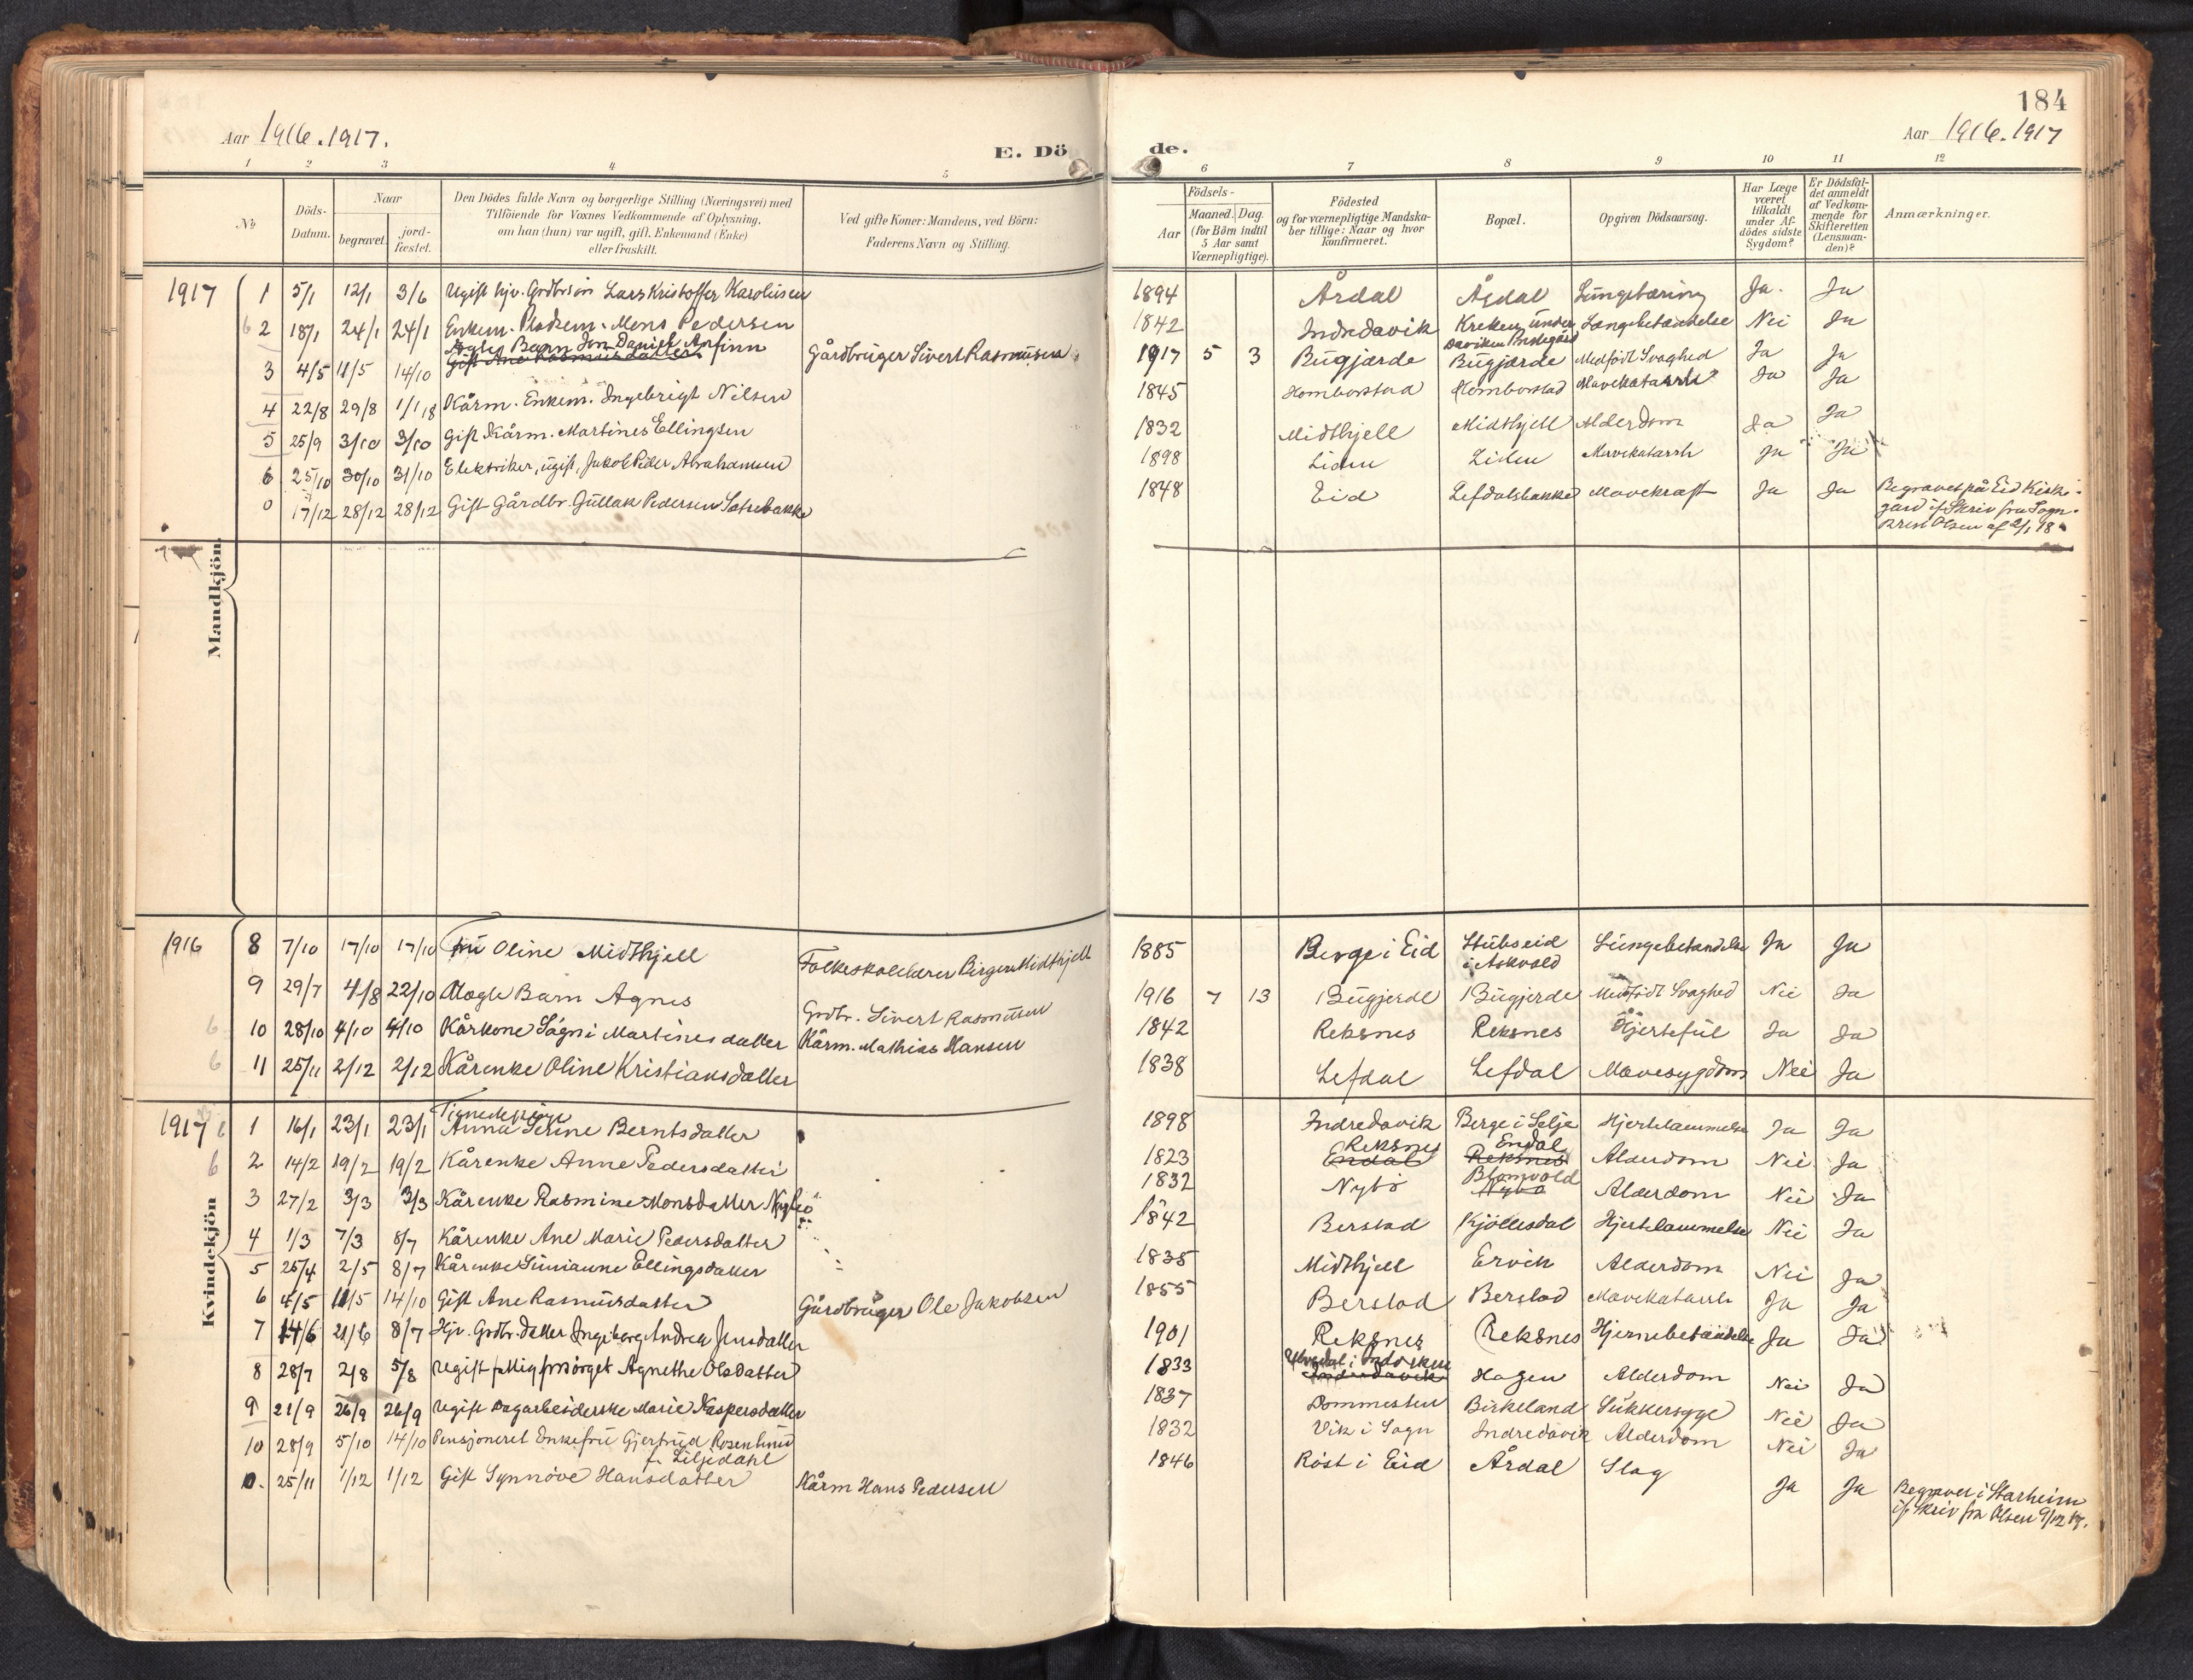 184
Aar 1916.1917.
E. Dö
de.
Aar 1916.1917
1 2 3 4 5 6 7 8 9 10 11 12
No
Döds-Datum.
Naar
begravet.
jord-fæstet.
Den Dödes fulde Navn og borgerlige Stilling (Næringsvei) med
Tilföiende for Voxnes Vedkommende af Oplysning,
om han (hun) var ugift, gift, Enkemand (Enke)
eller fraskilt.
Ved gifte Koner: Mandens, ved Börn:
Faderens Navn og Stilling.
Födsels-
Aar
Maaned. Dag.
(for Börn indtil
5 Aar samt
Værnepligtige).
Födested
og for værnepligtige Mandska-
ber tillige: Naar og hvor
konfirmeret.
Bopæl.
Opgiven Dödsaarsag.
Har Læge
været
tilkaldt
under Af-
dödes sidste
Sygdom?
Er Dödsfal-
det anmeldt
af Vedkom-
mende for
Skifteretten
(Lensman-
den)?
Anmærkninger.
Mandkjön.
1917 1 5/1 12/1 3/6 Ugift hjv. Grdbrsön Lars Kristoffer Karolusen 1894 Årdal Årdal Lungetæring Ja. Ja
2 18/1 24/1 24/1 Enkem. Pladsem. Mons Pedersen 1842 Indredavik Kreken under Daviken Prestegård Lungebetændelse Nei Ja
Ægte Barn Jon Daniel Anfinn
Gift Ane Rasmusdatter
3 4/5 11/5 14/10 Gårdbruger Sivert Rasmusen 1917 5 3 Bugjærde Bugjærde Medfödt Svaghed Ja Ja
4 22/8 29/8 1/1 18 Kårm. Enkem. Ingebrigt Nilsen 1845 Homborstad Homborstad Mavekatarrh Ja Ja
5 25/9 3/10 3/10 Gift Kårm. Martines Ellingsen 1832 Midthjell Midthjell Alderdom Ja Ja
6 25/10 30/10 31/10 Elektriker, ugift, Jakob Peder Abrahamsen 1898 Liden Liden Mavekatarrh Ja Ja
0 17/12 28/12 28/12 Gift Gårdbr. Gullak Pedersen Sætrebakke 1848 Eid Lefdalsbakke Mavekræft Ja Ja Begravet på Eid Kirke-
gård if. Skriv fra Sogn.
Prest Olsen af 2/1 18.
Kvindekjön
1916 8 7/10 17/10 17/10 Fru Oline Midthjell Folkeskolelærer Birger Midthjell 1885 Berge i Eid Stubseid i Askvold Lungebetændelse Ja Ja
9 29/7 4/8 22/10 Ægte Barn Agnes Grdbr. Sivert Rasmusen 1916 7 13 Bugjerde Bugjerde Medfödt Svaghed Nei Ja
10 28/10 4/10 4/10 Kårkone Sögni Martinesdatter Kårm. Mathias Hansen 1842 Reksnes Reksnes Hjertefeil Ja Ja
11 25/11 2/12 2/12 Kårenke Oline Kristiansdatter 1838 Lefdal Lefdal Mavesygdom Nei Ja
1917 1 16/1 23/1 23/1 Tjenestepige Anna Serine Berntsdatter 1898 Indredavik Berge i Selje Hjertelammelse Ja Ja
2 14/2 19/2 19/2 Kårenke Anne Pedersdatter 1823 Reksnes Endal Endal Reksnes Alderdom Nei Ja
3 27/2 3/3 3/3 Kårenke Rasmine Monsdatter Nybö 1832 Nybö Blomvold Nybö Alderdom Nei Ja
4 1/3 7/3 8/7 Kårenke Ane Marie Pedersdatter 1842 Berstad Kjöllesdal Hjertelammelse Nei Ja
5 25/4 2/5 8/7 Kårenke Simianne Ellingsdatter 1835 Midthjell Ervik Alderdom Nei Ja
6 4/5 11/5 14/10 Gift Ane Rasmusdatter Gårdbruger Ole Jakobsen 1855 Berstad Berstad Mavekatarrh Ja Ja
7 14/6 21/6 8/7 Hjv. Grdbr.datter Ingeborg Andrea Jensdatter 1901 Reksnes Reksnes Hjernebetændelse Ja Ja
8 28/7 2/8 5/8 Ugift fattigforsörget Agnethe Olsdatter 1833 Indredavik Hagen Alderdom Nei Ja
9 21/9 26/9 26/9 Ugift Dagarbeiderske Marie Kaspersdatter 1837 Dommesten Birkeland Sukkersyge Nei Ja
10 28/9 5/10 14/10 Pensjoneret Enkefru Gjertrud Rosenlund f. Liljedahl 1832 Vik i Sogn Indredavik Alderdom Nei Ja
0. 25/11 1/12 1/12 Gift Synnöve Hansdatter Kårm Hans Pedersen 1846 Röst i Eid Årdal Slag Ja Ja Begraven i Starheim
if. skriv fra Olsen 9/12 17.